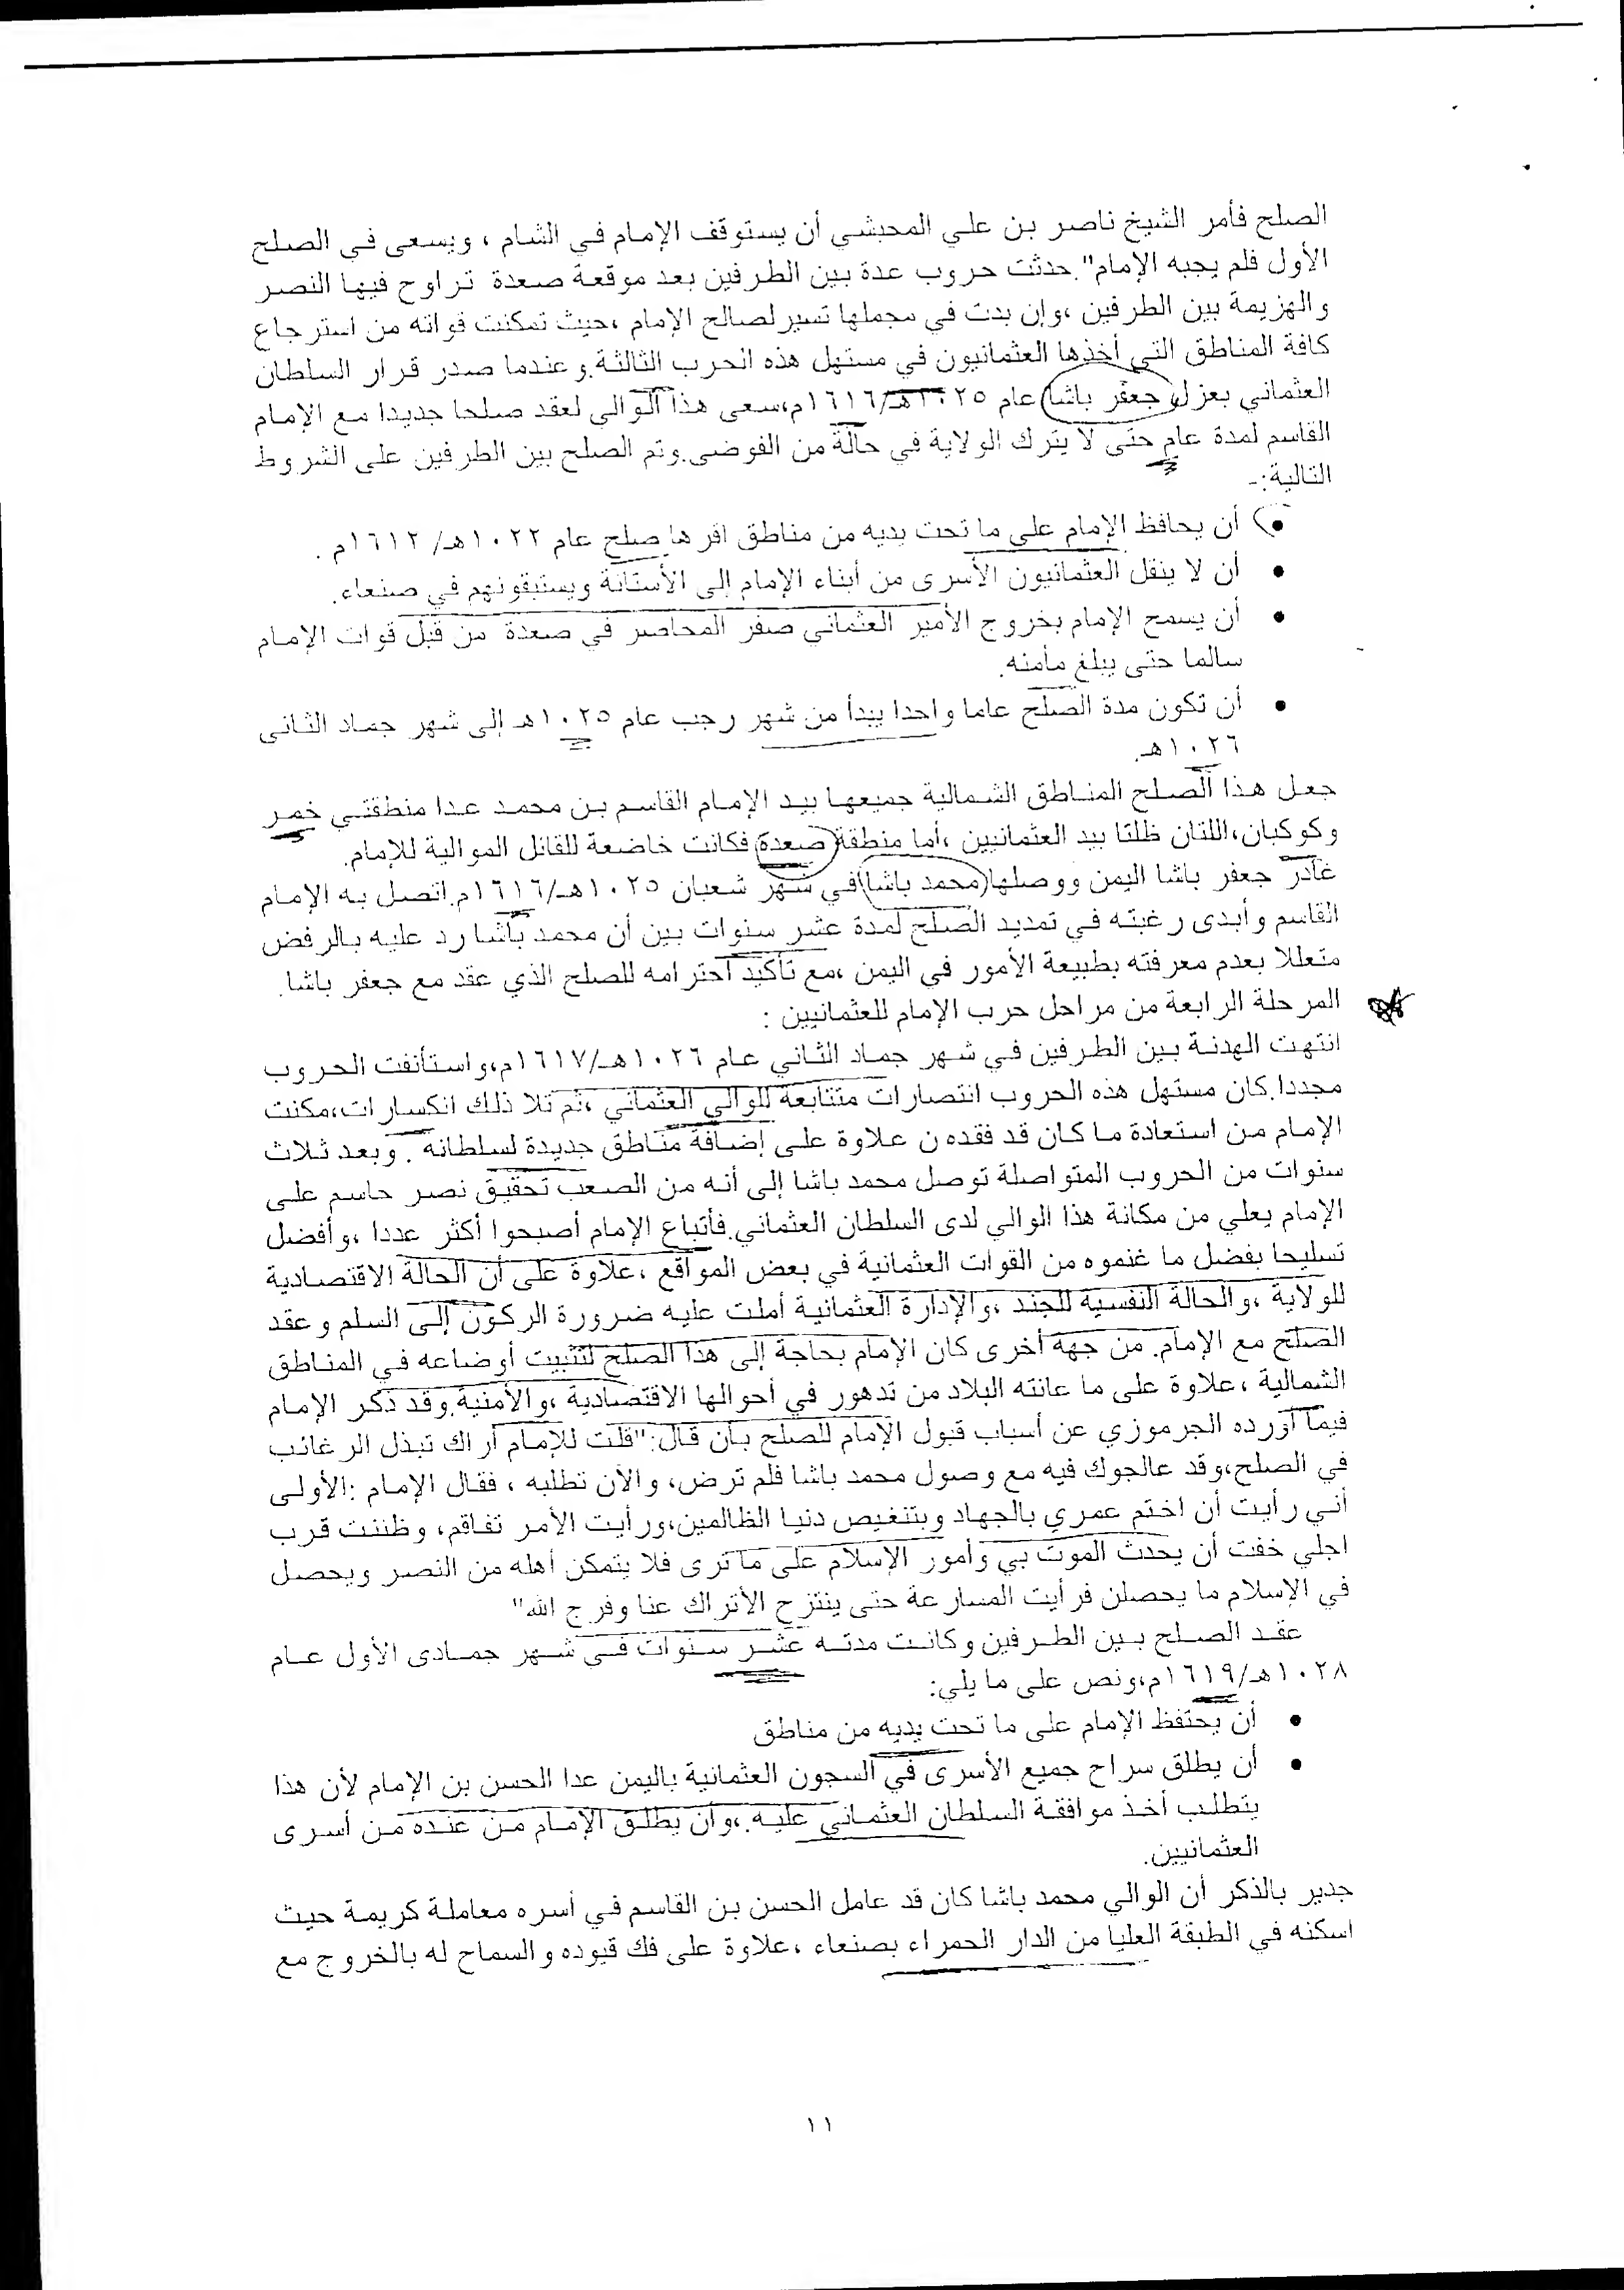 الصلح فأمر الشيخ ناصر بن علي المحبشي أن يستوقف الإمام في الشام ، ويسعى في الصلح
الأول فلم يجبه الإمام". حدثت حروب عدة بين الطرفين بعد موقعة صعدة تراوح فيها النصر
والهزيمة بين الطرفين ،وإن بدت في مجملها تسير لصالح الإمام ،حيث تمكنت قواته من استرجاع
كافة المناطق التي أخذها العثمانيون في مستهل هذه الحرب الثالثة.وعندما صدر قرار السلطان
العثماني بعزل (جعفر باشا) عام ١٠٢٥هـ/١٦١٦م،سعى هذا الوالي لعقد صلحا جديدا مع الإمام
القاسم لمدة عام حتى لا يترك الولاية في حالة من الفوضى.وتم الصلح بين الطرفين على الشروط
التالية:-
• أن يحافظ الإمام على ما تحت يديه من مناطق اقرها صلح عام ١٠٢٢هـ/ ١٦١٢م .
• أن لا ينقل العثمانيون الأسرى من أبناء الإمام إلى الأستانة ويستبقونهم في صنعاء.
• أن يسمح الإمام بخروج الأمير العثماني صفر المحاصر في صعدة من قبل قوات الإمام
سالما حتى يبلغ مأمنه.
• أن تكون مدة الصلح عاما واحدا يبدأ من شهر رجب عام ١٠٢٥هـ إلى شهر جماد الثاني
١٠٢٦هـ.
جعل هذا الصلح المناطق الشمالية جميعها بيد الإمام القاسم بن محمد عدا منطقتي خمر
وكوكبان،اللتان ظلتا بيد العثمانيين ،أما منطقة (صعدة) فكانت خاضعة للقائل الموالية للإمام.
غادر جعفر باشا اليمن ووصلها (محمد باشا) في شهر شعبان ١٠٢٥هـ/١٦١٦م.اتصل به الإمام
القاسم وأبدى رغبته في تمديد الصلح لمدة عشر سنوات بين أن محمد باشا رد عليه بالرفض
متعللا بعدم معرفته بطبيعة الأمور في اليمن ،مع تأكيد احترامه للصلح الذي عقد مع جعفر باشا.
المرحلة الرابعة من مراحل حرب الإمام للعثمانيين :
انتهت الهدنة بين الطرفين في شهر جماد الثاني عام ١٠٢٦هـ/١٦١٧م،واستأنفت الحروب
مجددا.كان مستهل هذه الحروب انتصارات متتابعة للوالي العثماني ،ثم تلا ذلك انكسارات،مكنت
الإمام من استعادة ما كان قد فقده ن علاوة على إضافة مناطق جديدة لسلطانه . وبعد ثلاث
سنوات من الحروب المتواصلة توصل محمد باشا إلى أنه من الصعب تحقيق نصر حاسم على
الإمام يعلي من مكانة هذا الوالي لدى السلطان العثماني.فأتباع الإمام أصبحوا أكثر عددا ،وأفضل
تسليحا بفضل ما غنموه من القوات العثمانية في بعض المواقع ،علاوة على أن الحالة الاقتصادية
للولاية ،والحالة النفسية للجند ،والإدارة العثمانية أملت عليه ضرورة الركون إلى السلم وعقد
الصلح مع الإمام. من جهة أخرى كان الإمام بحاجة إلى هذا الصلح لتثبيت أوضاعه في المناطق
الشمالية ،علاوة على ما عانته البلاد من تدهور في أحوالها الاقتصادية ،والأمنية.وقد ذكر الإمام
فيما أورده الجرموزي عن أسباب قبول الإمام للصلح بأن قال:"قلت للإمام أراك تبذل الرغائب
في الصلح،وقد عالجوك فيه مع وصول محمد باشا فلم ترض، والآن تطلبه ، فقال الإمام :الأولى
أني رأيت أن اختم عمري بالجهاد وبتنغيص دنيا الظالمين،ورأيت الأمر تفاقم، وظننت قرب
اجلي خفت أن يحدث الموت بي وأمور الإسلام على ما ترى فلا يتمكن أهله من النصر ويحصل
في الإسلام ما يحصلن فرأيت المسارعة حتى ينتزح الأتراك عنا وفرج الله"
عقد الصلح بين الطرفين وكانت مدته عشر سنوات في شهر جمادى الأول عام
١٠٢٨هـ/١٦١٩م،ونص على ما يلي:
• أن يحتفظ الإمام على ما تحت يديه من مناطق
• أن يطلق سراح جميع الأسرى في السجون العثمانية باليمن عدا الحسن بن الإمام لأن هذا
يتطلب أخذ موافقة السلطان العثماني عليه.،وأن يطلق الإمام من عنده من أسرى
العثمانيين.
جدير بالذكر أن الوالي محمد باشا كان قد عامل الحسن بن القاسم في أسره معاملة كريمة حيث
اسكنه في الطبقة العليا من الدار الحمراء بصنعاء ،علاوة على فك قيوده والسماح له بالخروج مع
١١